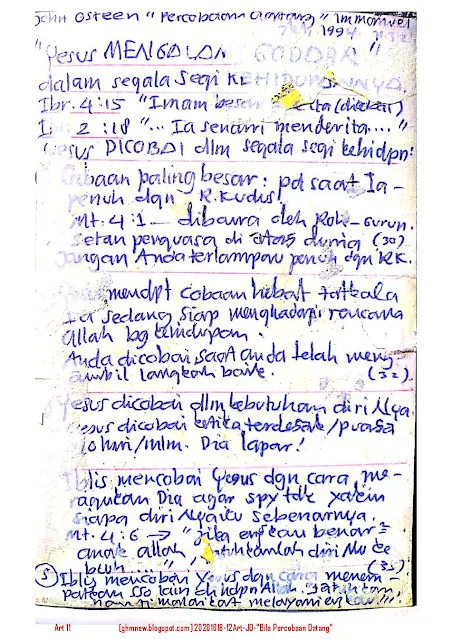 John Osteen "Percobaan Datang" Immanuel
1994
"Yesus MENGALAMI GODAAN"
dalam segala segi KEHIDUPANNYA
Ibr. 4:15 "Imam besar kita (dicobai)
Ibr 2:18 "... Ia sendiri menderita...."
Yesus DICOBAI dlm segala segi kehidpn:
Cobaan paling besar: pd saat Ia
penuh dgn R. Kudus!
Mt. 4:1 — dibawa oleh Roh - Gurun.
Setan penguasa di atas dunia (30)
Jangan Anda terlampau penuh dgn RK.
mendpt cobaan hebat tatkala
Ia sedang siap menghadapi rencana
Allah bg kehidupan.
Anda dicobai saat anda telah meng-
ambil langkah baik. (32)
Yesus dicobai dlm kebutuhan diri Nya.
Yesus dicobai ketika terdesak/puasa
40 hari/mlm. Dia lapar!
Iblis mencobai Yesus dgn cara me-
ragukan Dia agar spy tdk yakin
siapa diri Nya itu sebenarnya.
Mt. 4:6 → "jika engkau benar2
anak Allah, jatuhkanlah diri Mu ke
bwh......"
5) Iblis mencobai Yesus dgn cara menem-
patkan sso lain
malaikat melayani engkau!!!
Art 11 [ghmnew.blogspot.com] 20201018-12Art-JO-"Bila Percobaan Datang"